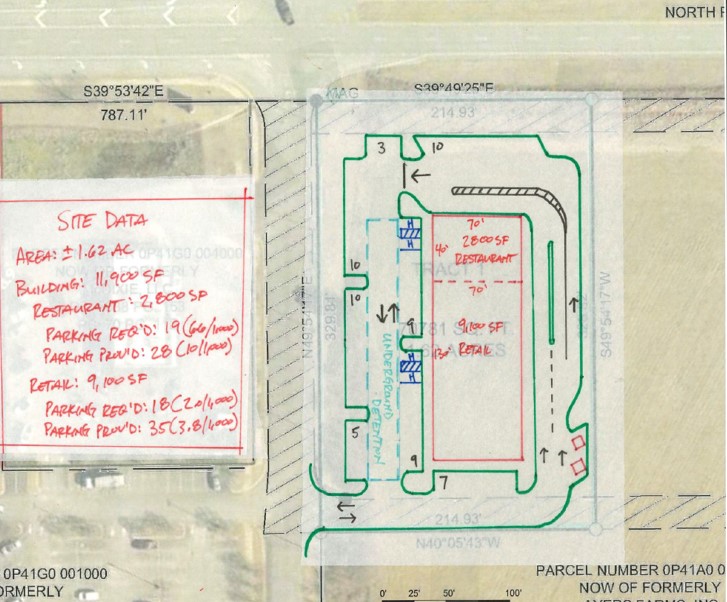 NORTH
S39°53'42"E
787.11'
MAG
S39°49'25"E
214.93'
SITE DATA
AREA: ±1.62 AC
BUILDING: 11,900 SF
RESTAURANT: 2,800 SF
PARKING REQ'D: 19 (6.6/1,000)
PARKING PROV'D: 28 (10/1,000)
RETAIL: 9,100 SF
PARKING REQ'D: 18 (2.0/1,000)
PARKING PROV'D: 35 (3.8/1,000)
3
10
H
H
70'
40'
2800 SF
RESTAURANT
TRACT 1
70'
10
10
329.84'
9
9,100 SF
RETAIL
130'
70781 SQ. FT.
1.62 ACRES
S49°54'17"W
H
H
UNDERGROUND
DETENTION
5
9
7
214.93'
N40°05'43"W
0P41G0 001000
ORMERLY
PARCEL NUMBER 0P41A0 0
NOW OF FORMERLY
0' 25' 50' 100'